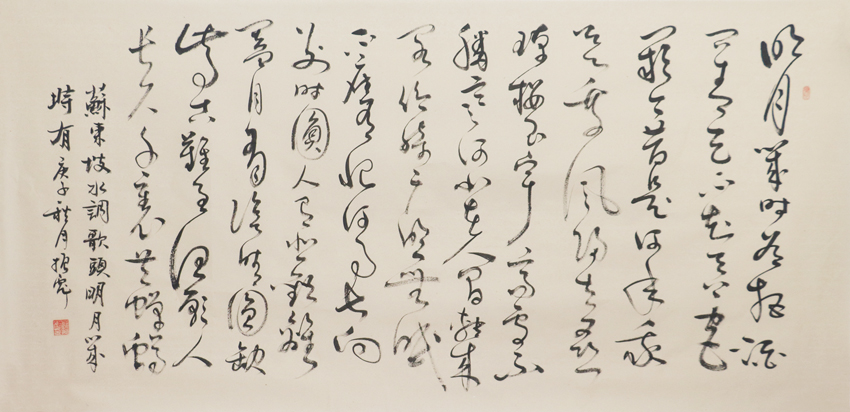 明月幾時有把酒
问青天不知天上宫
阙今昔是何年我
欲乘風歸去又恐
瓊樓玉宇高處不
勝寒何似在人間轉朱
閣低綺户照無眠
不應有恨何事長向
别時圓人有悲歡離
合月有陰晴圓缺
此事古難全但願人
長久千里共嬋娟
蘇東坡水調歌頭明月幾
時有庚子秋月